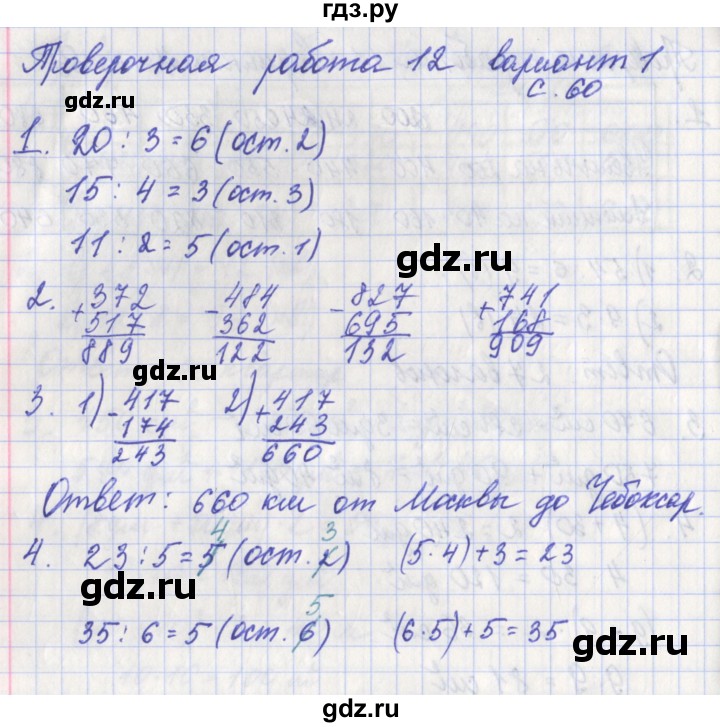 гдз.ру
Проверочная работа 12 вариант 1
с. 60
gdz.ru
1. 20 : 3 = 6 (ост. 2)
15 : 4 = 3 (ост. 3)
gdz.ru
11 : 2 = 5 (ост. 1)
gdz.ru
2. +372 -484 -827 +741
517 362 695 168
889 122 132 909
gdz.ru
gdz.ru
3. 1) -417 2) +417
174 243
243 660
gdz.ru
Ответ: 660 км от Москвы до Чебоксар.
gdz.ru
4 3
4. 23 : 5 = 5 (ост. 2) (5·4)+3=23
gdz.ru
gdz.ru
5
35 : 6 = 5 (ост. 6) (6·5)+5=35
gdz.ru
gdz.ru